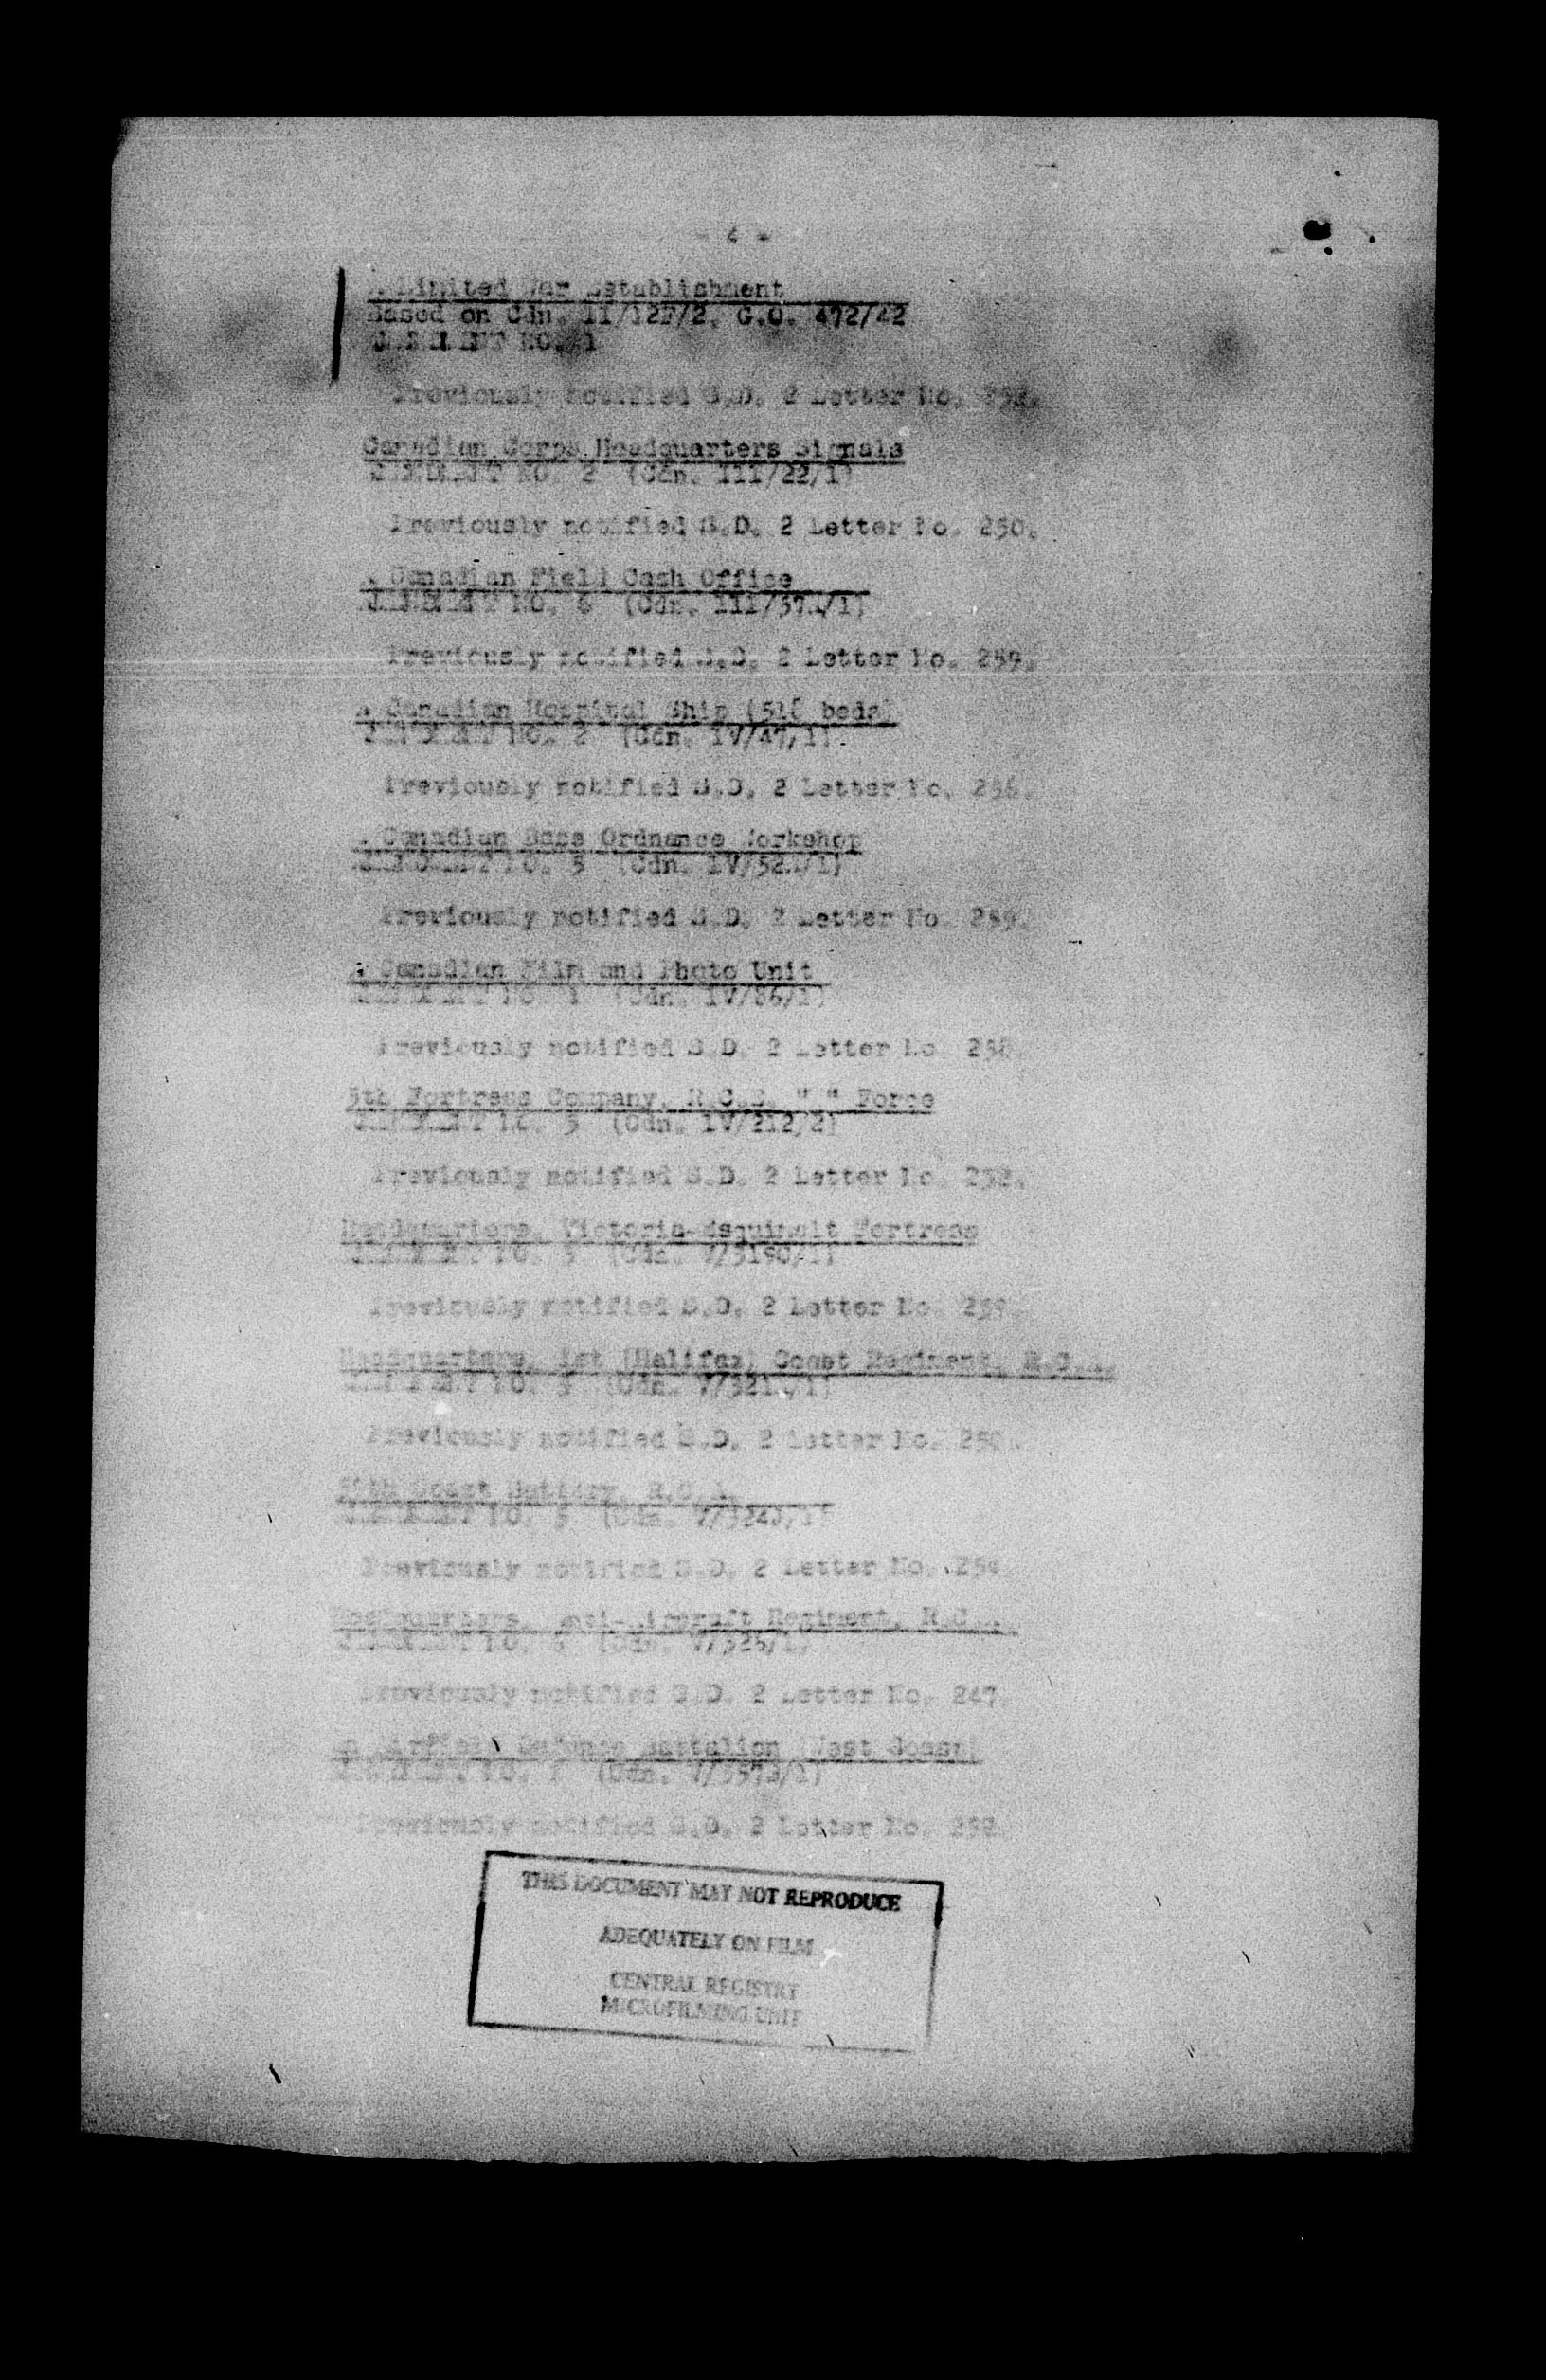 - 4 -
A Limited War Establishment
Based on Cdn. II/127/2, G.O. 472/42
AMENDMENT NO. 1
Previously notified S.D. 2 Letter No.
Canadian Corps Headquarters Signals
AMENDMENT NO. 2 (Cdn. III/22/1)
Previously notified S.D. 2 Letter No. 250.
A Canadian Field Cash Office
AMENDMENT NO. 6 (Cdn. III/37A/1)
Previously notified S.D. 2 Letter No. 259.
A Canadian Hospital Ship (510 beds)
AMENDMENT NO. 2 (Cdn. IV/47/1)
Previously notified S.D. 2 Letter No. 256.
A Canadian Base Ordnance Workshop
AMENDMENT NO. 5 (Cdn. IV/52A/1)
Previously notified S.D. 2 Letter No. 259.
A Canadian Film and Photo Unit
AMENDMENT NO. 1 (Cdn. IV/86/1)
Previously notified S.D. 2 Letter No. 258.
5th Fortress Company, R.C.E. " " Force
AMENDMENT NO. 3 (Cdn. IV/212/2)
Previously notified S.D. 2 Letter No. 252.
Headquarters, Victoria-Esquimalt Fortress
AMENDMENT NO. 3 (Cdn.
Previously notified S.D. 2 Letter No.
Headquarters, 1st (Halifax) Coast Regiment, R.C.A.
AMENDMENT NO. (Cdn. V/321A/1)
Previously notified S.D. 2 Letter No.
Coast Battery, R.C.A.
AMENDMENT NO. (Cdn.
Previously notified S.D. 2 Letter No. 254
Headquarters, Anti-Aircraft Regiment, R.C.A.
AMENDMENT NO. (Cdn. V/326/1)
Previously notified S.D. 2 Letter No. 247.
An Airfield Defence Battalion (West Coast)
AMENDMENT NO. (Cdn.
Previously notified S.D. 2 Letter No. 252
THIS DOCUMENT MAY NOT REPRODUCE
ADEQUATELY ON FILM
CENTRAL REGISTRY
MICROFILMING UNIT